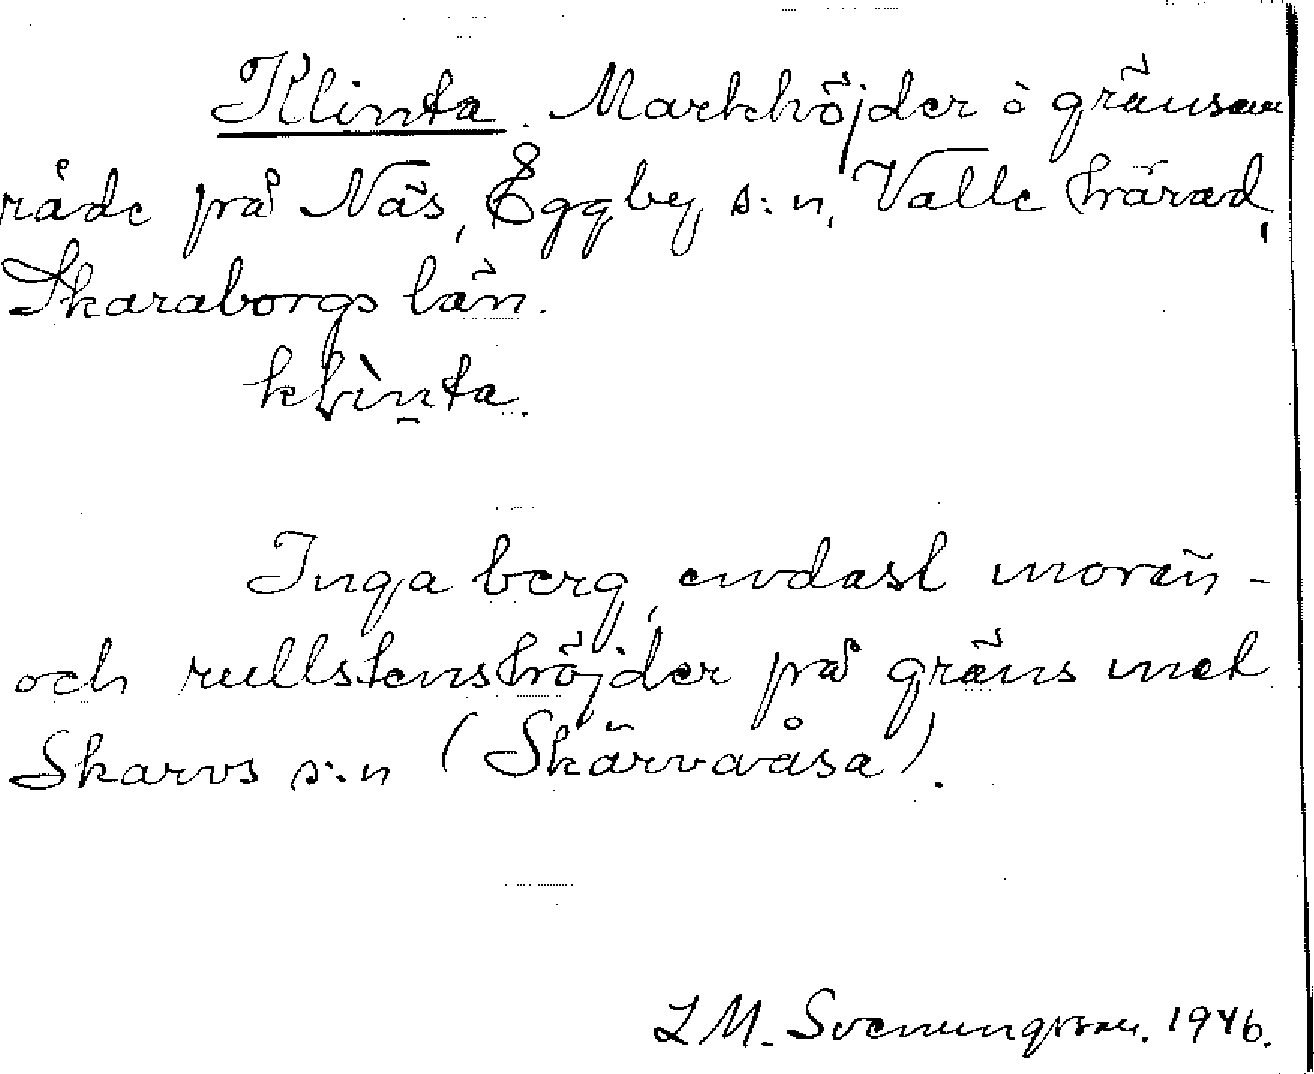 Klinta. Markhöjder o gränsom
råde på Näs, Eggby s:n, Valle härad,
Skaraborgs län.
klìnta.
Inga berg, endast morän-
och rullstenshöjder på gräns mot
Skarvs s:n (Skärvaåsa).
L M. Svenungsson. 1946.